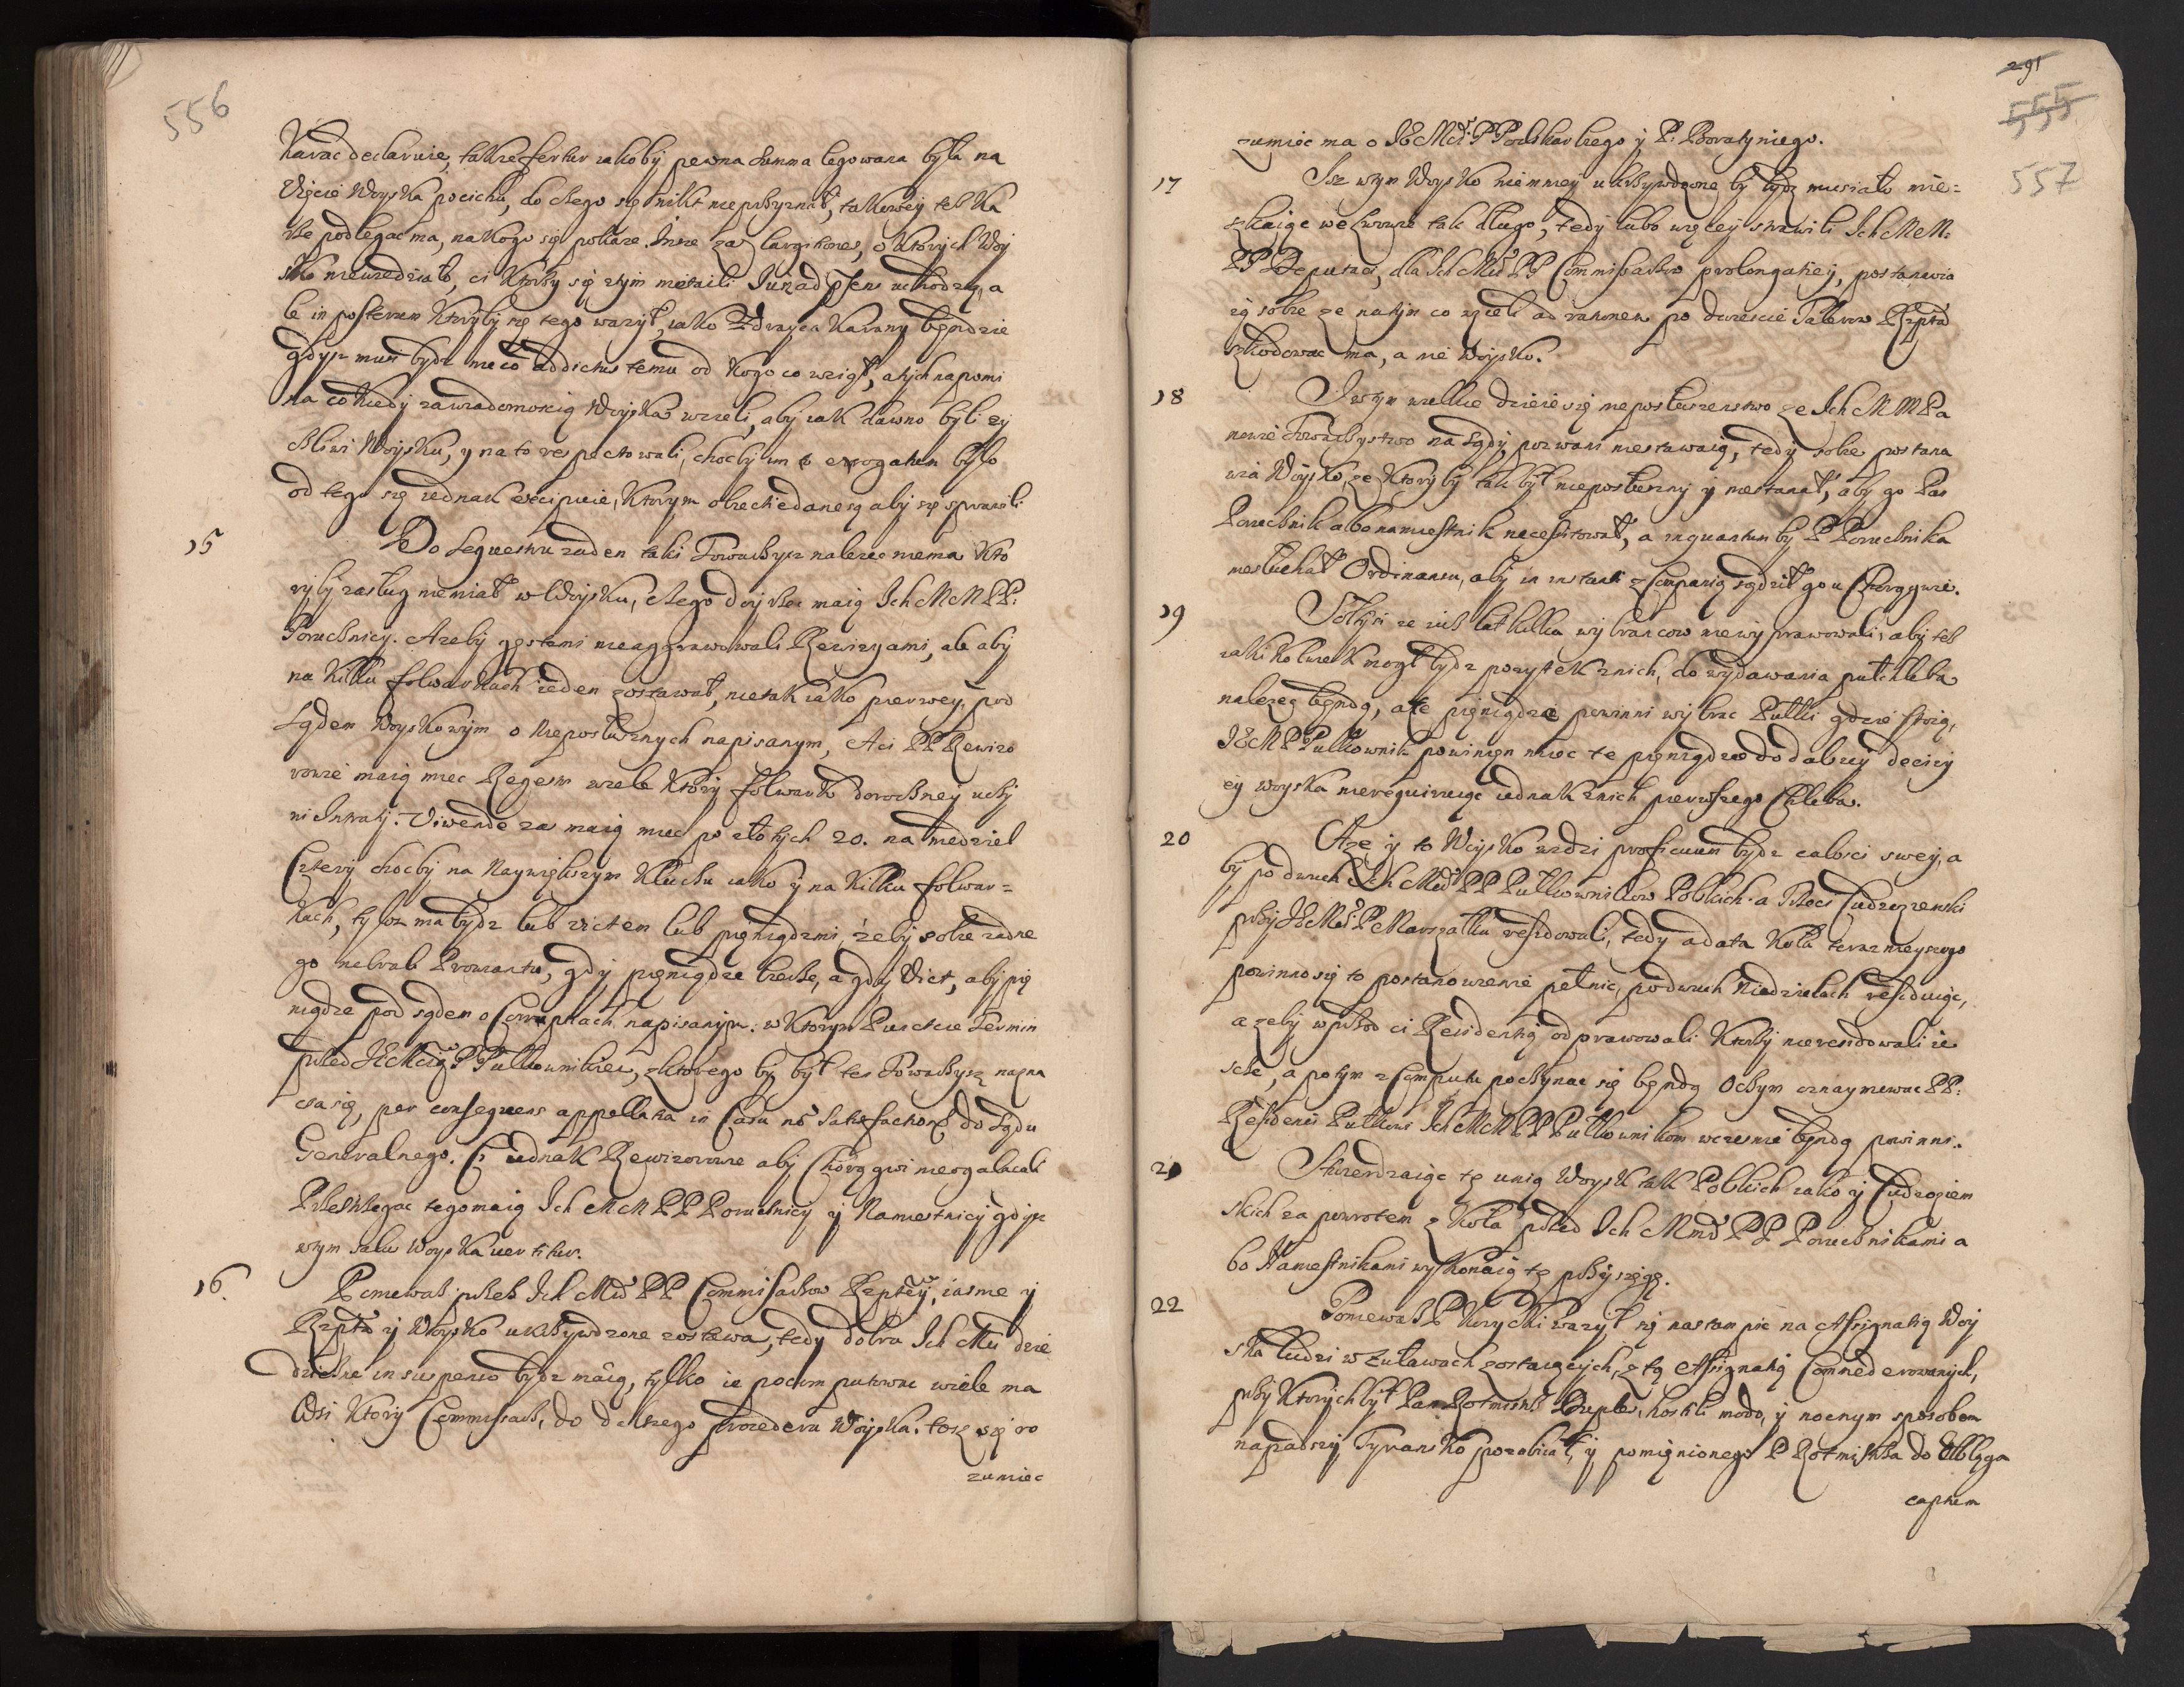 556
Karać declaruie, także fertur jakoby pewna summa legowana była na
Użycie Woyska pocichu, do czego się nikt nie przyznał, takowey też Ka
rze podlegac ma, na kogo się pokaże. Insze zaś largitiones, o których Woy
sko niewiedziało, ci Ktorzy się z tym nietaili Iuż ad psens uchodzą, a
le in posterum Ktoryby się tego ważył, iako Zdrayca Karany będzie
gdysz musi bydz nieco addictus temu od kogo co wziął, a tych napomi
na co kiedy za wiadomością Woyska wzieli, aby iak dawno byli ży
czliwi Woysku, y na to respectowali, choćby im to erogatum było
od tego się iednak excipuie, Ktorym obrechiedane są aby się sprawili
15
Do Sequestru żaden taki Towarzysz należec niema Kto
ryby zasług niemiał w Woysku, czego doyrzec maią Ich M M PP:
Porucznicy. Ażeby gęstemi nie aggrawowali Rewizyami, ale aby
na Kilku folwarkach ieden zostawał, nietak iako pierwey, pod
Sądem Woyskowym o nieposłusznych napisanym, A ci PP Rewizo
rowie maią miec Regestr wiele Ktory folwark doroczney uczy
ni Intraty. Viwende za maią miec po złotych 20. na niedziel
Cztery choćby na Naywiększym Kluczu iako y na Kilku folwar=
kach, tysz ma bydz lub victem lub pieniądzmi, żeby sobie żadne
go niebrał Prowiantu, gdy pieniądze bierze, a gdy Vict, aby pie
niądze pod sądem o Corruptach napisanym. w Ktorym Punctcie Termin
przed JEMcią P Pułkownikiem, z Ktorego by był ten Towarzysz nazna
cza się, per consequens appellatia in Casu nō satisfactionis do Sądu
Generalnego. Ci iednak Rewizorowie aby Chorągwi nieogałacali
Przestrzegac tego maią Ich M M PP Porucznicy y Namiestnicy gdysz
w tym Salus Woyska vertitur.
16.
Ponieważ przez Ich Mciw PP Commissarzow Rzptey, iasnie y
Rzpta y Woysko ukrzywdzone zostawa, tedy dobra Ich Mci dzie
dziczne in suspenso bydz maią, tylko ie pocomputowac wiele ma
Wsi Ktory Commissarz, do dalszego procederu Woyska. tosz się ro
zumiec
291
555
557
zumiec ma o JE Mci P Podskarbiego y P: Boratyniego.
17
Isz w tym Woysko niemniey ukrzywdzone bydz musiało mie=
szkaiąc we Lwowie tak długo, tedy lubo więcey strawili Ich M M:
PP Deputaci, dla Ich Mci PP Commissarzow prolongatiey, postanawia
ią sobie ze natym co wzieli ad rationem po dwiescie Talerow Rzpta
szkodowac ma, a nie Woysko.
18
I w tym wielkie dzieie się nieposłuszenstwo że Ich M M Pa
nowie Towarzystwo na Sądy pozwani niestawaią, tedy sobie postana
wia Woysko, że Ktoryby tak był nieposłuszny y niestanął, aby go Pan
Porucznik albo namiestnik necessitował, a inquantum by P Porucznika
niesłuchał Ordinansu, aby in instanti z Companią sądził go u Chorągwie.
19
Pułki że iusz lat kilka wybrancow niewyprawowali, aby też
iakikolwiek mogł bydz pozytek znich, do wydawania pułchleba
należeć będą, ale pieniądze powinni wybrac Pułki gdzie stoią,
JEM P Pułkownik powinien miec te pieniądze do dalszey decizy
ey woyska nierequiruiąc iednak znich pierwszego Chleba.
20
Aże y to Woysko widzi proficuum bydz całosci swey, a
by po dwuch Ich Mciw PP Pułkownikow Polskich a Trzeci Cudzoziemski
przy JEMci P Marszałku residowali, tedy a data Koła terazneyszego
powinno się to postanowienie pełnic, po dwuch Niedzielach residuiąc,
a żeby w przod ci Residentią odprawowali Ktorzy nieresidowali ie
scze, a potym z Computu poczynac się będą Oczym oznaymiewac PP:
Residenci Pułkowi Ich M M PP Pułkownikom wczesnie będą powinni.
21
Stwierdzaiąc tę unią Woysk tak Polskich iako y Cudzoziem
skich za powrotem z Koła przed Ich Mmci PP Porucznikami a
bo Namiestnikami wykonaią tę przysięgę.
22
Ponieważ P Kurycki ważył się nastąmpic na Assignatią Woy
ska ludzi w Zuławach zostaiących, z tą Assignatią Commederowanych,
przy Ktorych był Pan Rotmistrz Pruple, hostili modo, y nocnym sposobem
napadszy Tyransko pozabiiał, y pomienionego P Rotmistrza do Elbląga
captum